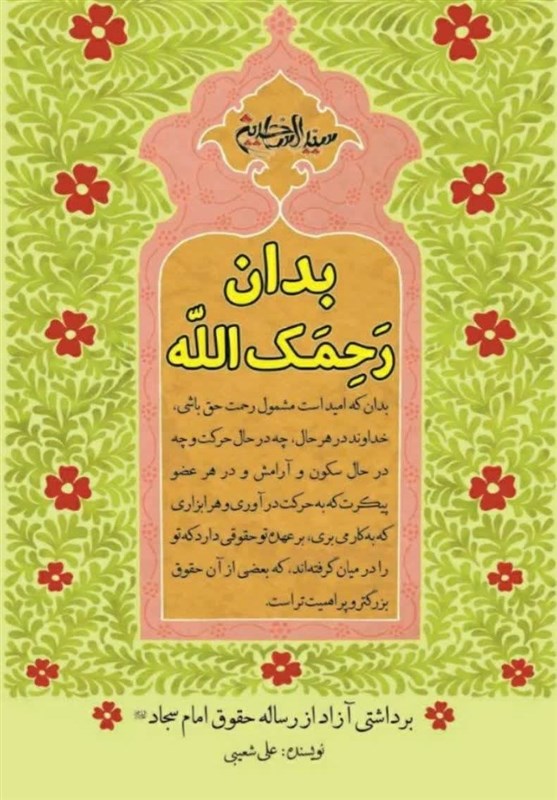 بدان
رَحِمَک اللّه
بدان که امید است مشمول رحمت حق باشی،
خداوند در هر حال، چه در حال حرکت و چه
در حال سکون و آرامش و در هر عضو
پیکرت که به حرکت درآوری و هر ابزاری
که به کار می بری، بر عهده تو حقوقی دارد که تو
را در میان گرفته‌اند، که بعضی از آن حقوق
بزرگتر و پر اهمیت تر است.
برداشتی آزاد از رساله حقوق امام سجاد
نویسنده: علی شعیبی